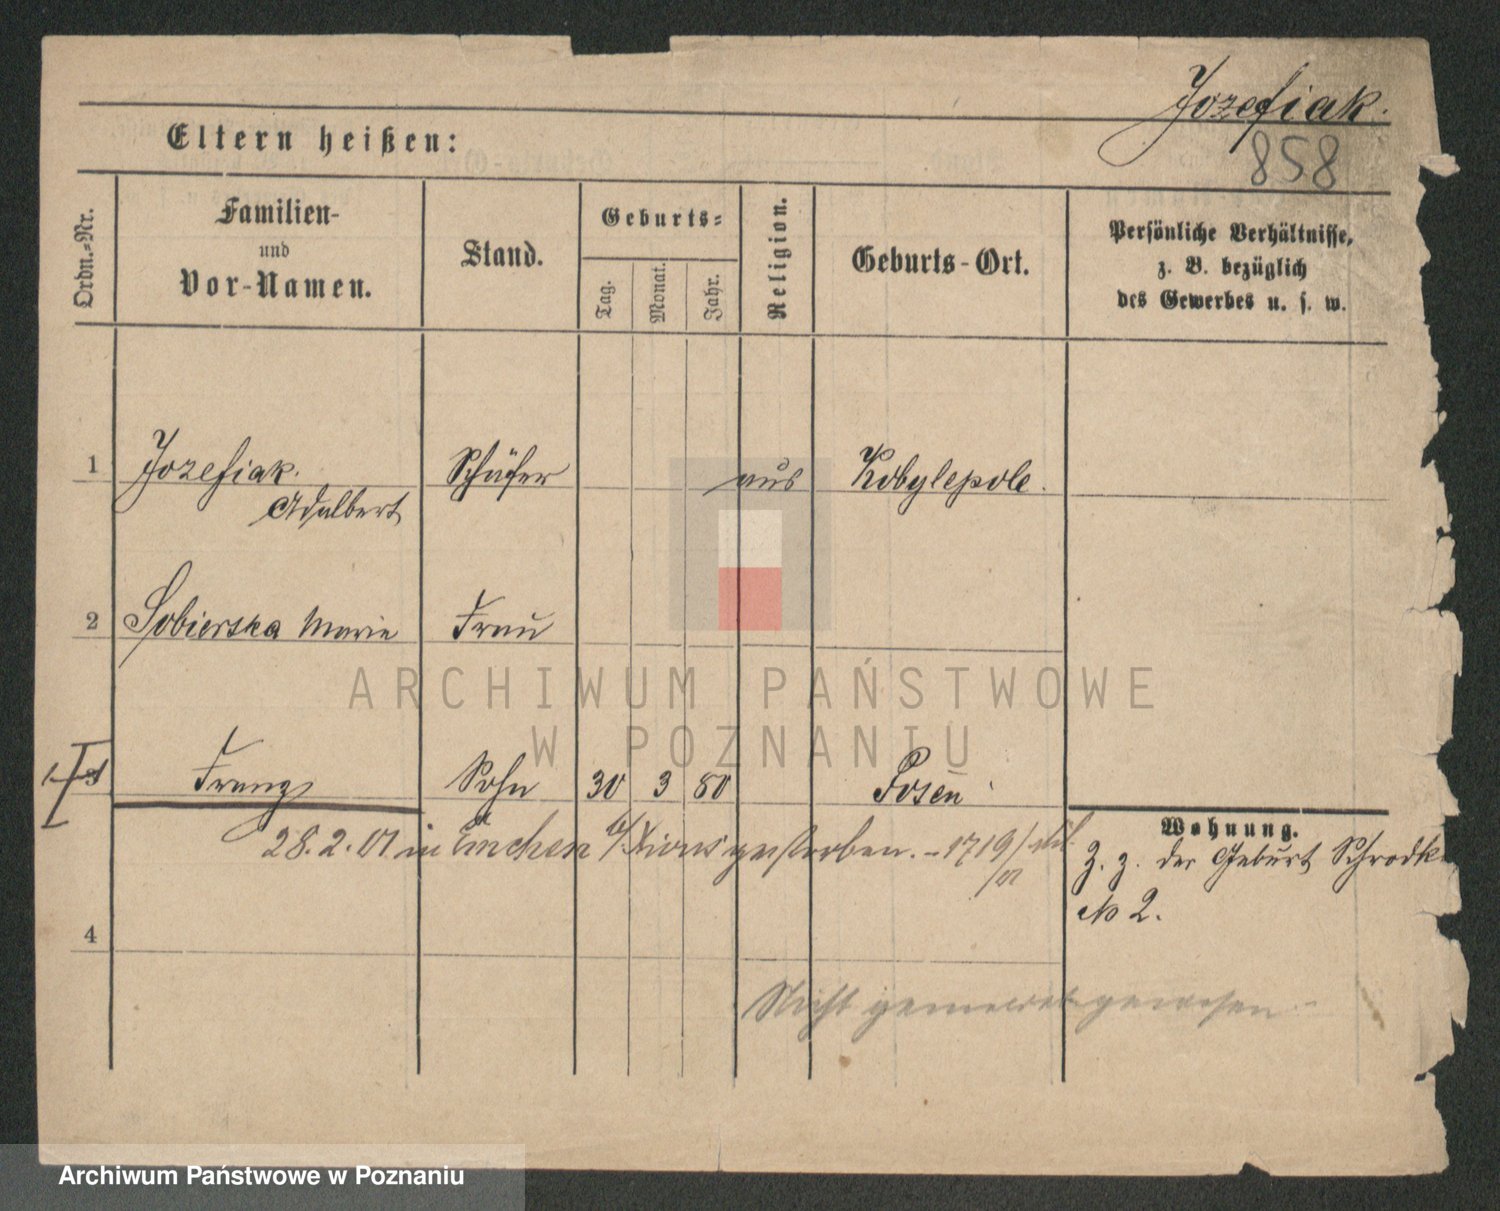 Jozefiak.
858
Eltern heißen:
Ordn.-Nr.
Familien-
und
Vor-Namen.
Stand.
Geburts-
Tag.
Monat.
Jahr.
Religion.
Geburts-Ort.
Persönliche Verhältnisse,
z. B. bezüglich
des Gewerbes u. s. w.
1 Jozefiak. Schäfer aus Kobylepole.
Adalbert
2 Sobierska Marie Frau
Franz Sohn 30 3 80 Posen
28.2.01 in Emchen b/Xions gestorben. - 1719/
/01
Wohnung.
Z. z. der Geburt Schrodk
No 2.
4
Nicht gemeldet gewesen
ARCHIWUM PAŃSTWOWE
W POZNANIU
Archiwum Państwowe w Poznaniu